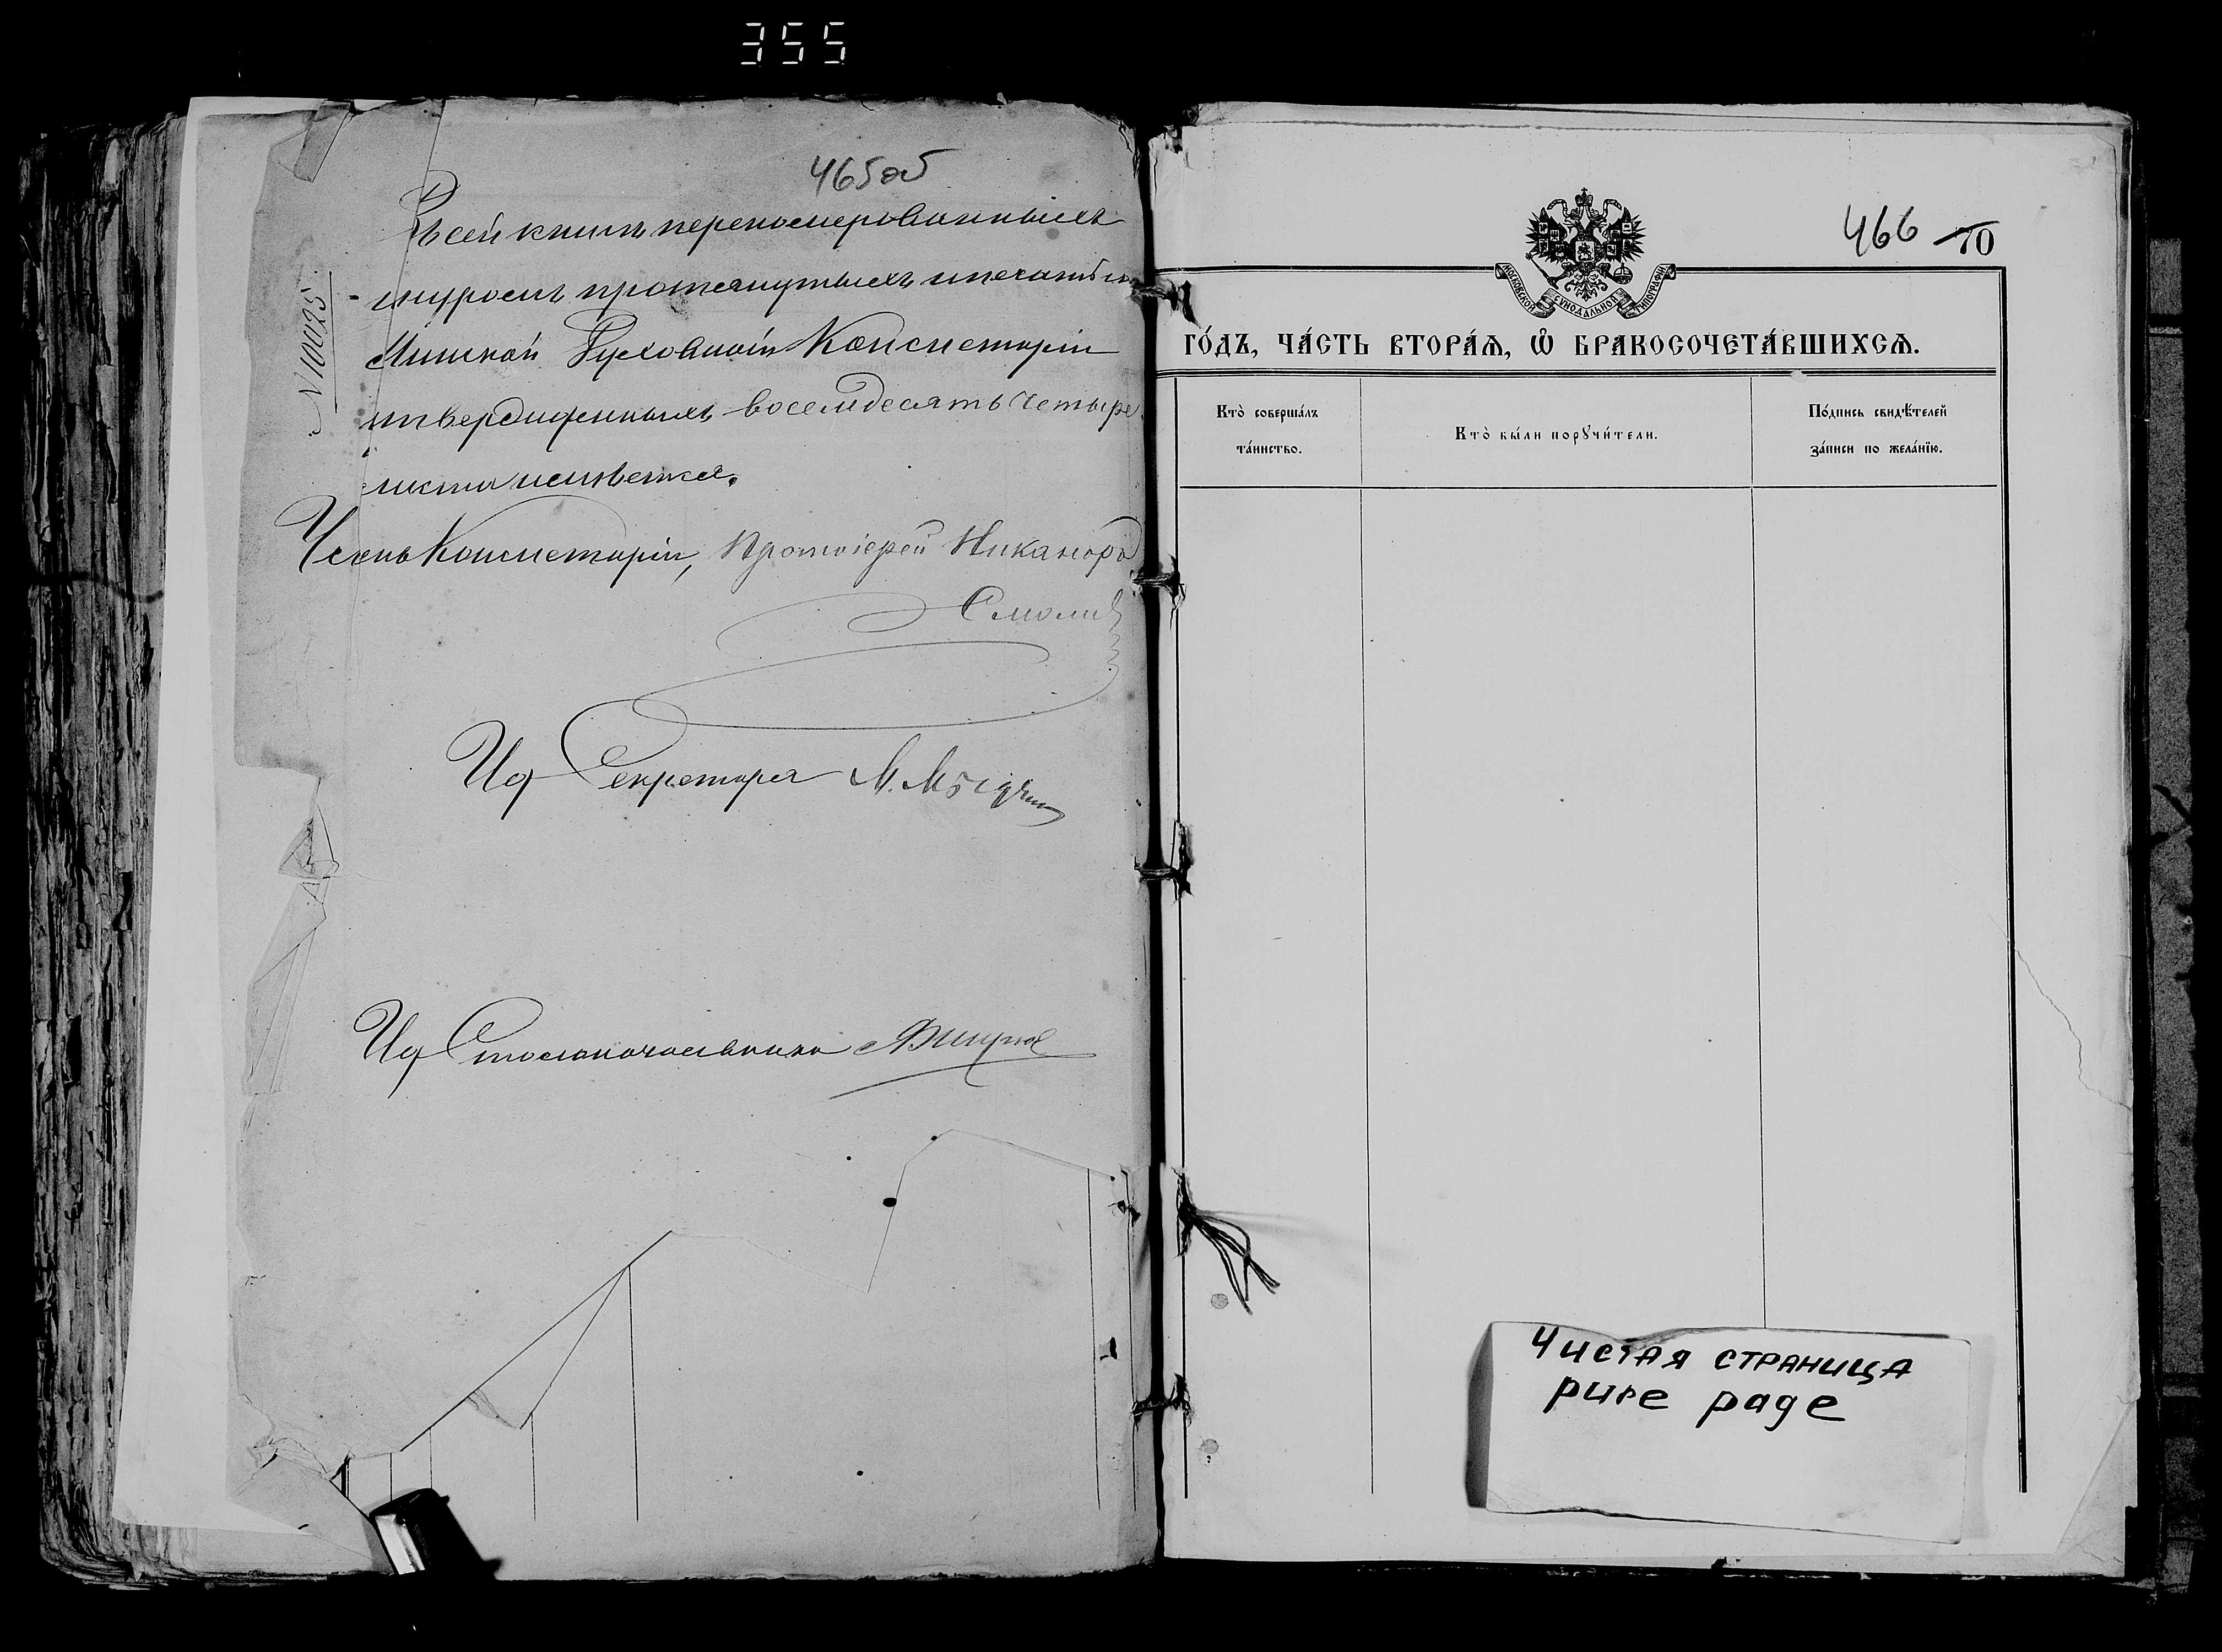 355
465об
Въ сей книгѣ перенумерованныхъ
шнуромъ протянутыхъ и печатью
Минской Духовной Консисторіи
утвержденныхъ восемьдесятъ четыре
листа имѣется.
Членъ Консисторіи, Протоіерей Никаноръ
Смолич
Ид Секретаря М.
Ид Столоначальника
N 10025
466 70
МОСКОВСКОЙ СѴНОДАЛЬНОЙ ТИПОГРАФІИ
ГО́ДЪ, ЧА́СТЬ ВТОРА́Ѧ, Ѽ БРАКОСОЧЕТА́ВШИХСѦ.
Кто̀ соверша́лъ
та́инство.
Кто̀ бы́ли порꙋчи́тели.
По́дпись свидѣ́телей
за́писи по жела́нїю.
Чистая страница
pure page